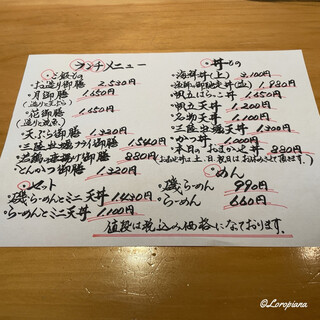 ランチメニュー
・ご飯もの
お造り御膳 2.530円
・月御膳 1.650円
(造りと天ぷら)
・花御膳 1.650円
(造りと焼魚)
天ぷら御膳 1.320円
・三陸牡蠣フライ御膳 1.540円
・若鶏の唐揚げ御膳 880円
・とんかつ御膳 1.320円
・セット
磯らーめんとミニ天丼 1.430円
らーめんとミニ天丼 1.100円
・丼もの
・海鮮丼(上) 3.100円
・帆立ばらっこ丼 1.650円
・帆立天丼 1.200円
・名物天丼 1.100円
・三陸牡蠣天丼 1.300円
・かつ丼 1.000円
・本日のおまかせ丼 880円
(おまかせ丼は土、日、祝日はお休みさせて頂きます。)
・めん
磯らーめん 990円
・らーめん 660円
値段は税込み価格になっております。
@Loropiana